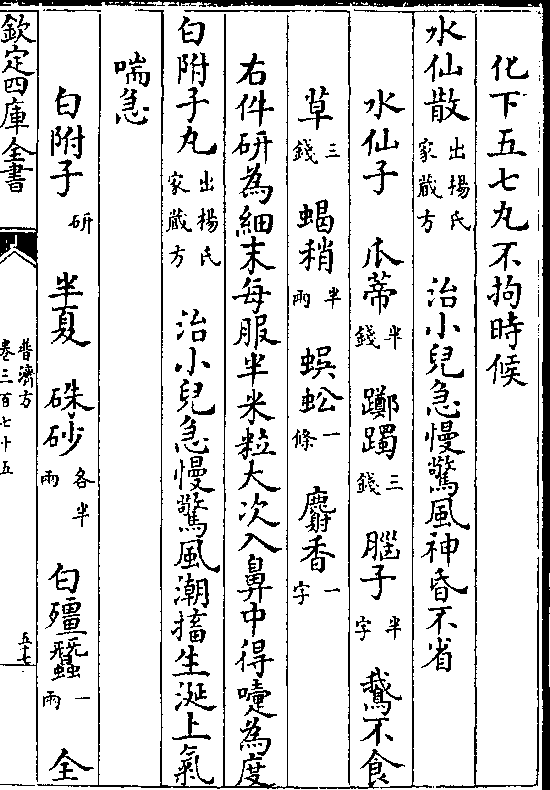 化下五七丸不拘時候
水仙散出楊氏家藏方 治小兒急慢驚風神昏不省
水仙子 瓜蒂半錢 躑躅三錢 腦子半字 鵞不食
草三錢 蝎稍半兩 蜈蚣一條 麝香一字
右件研為細末每服半米粒大次入鼻中得嚏為度
白附子丸出楊氏家藏方 治小兒急慢驚風潮搐生涎上氣
喘急
白附子研 半夏 硃砂各半兩 白殭蠶一兩 全
欽定四庫全書
普濟方
卷三百七十五
五十七